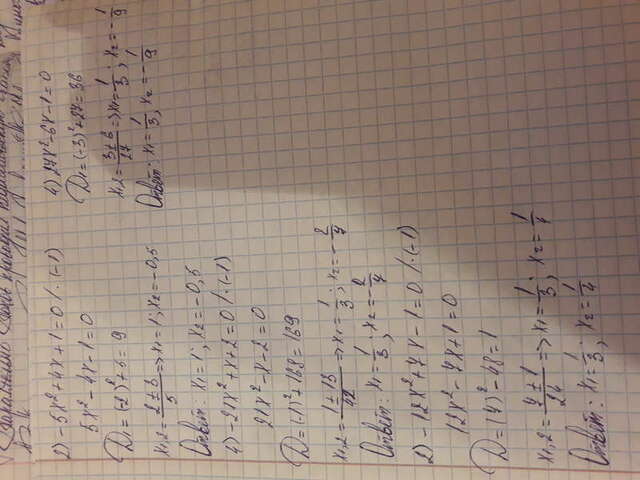 2) -5x² + 4x + 1 = 0 /·(-1)
5x² - 4x - 1 = 0
D₁ = (-2)² + 5 = 9
x₁,₂ = (2 ± 3)/5 => x₁ = 1; x₂ = -0,5
Ответ: x₁ = 1; x₂ = -0,5
4) -21x² + x + 2 = 0 /·(-1)
21x² - x - 2 = 0
D = (-1)² + 168 = 169
x₁,₂ = (1 ± 13)/42 => x₁ = 1/3; x₂ = -2/7
Ответ: x₁ = 1/3; x₂ = -2/7
2) -12x² + 7x - 1 = 0 /·(-1)
12x² - 7x + 1 = 0
D = (7)² - 48 = 1
x₁,₂ = (7 ± 1)/24 => x₁ = 1/3; x₂ = 1/4
Ответ: x₁ = 1/3; x₂ = 1/4
4) 27x² - 6x - 1 = 0
D₁ = (-3)² + 27 = 36
x₁,₂ = (3 ± 6)/27 => x₁ = 1/3; x₂ = -1/9
Ответ: x₁ = 1/3; x₂ = -1/9